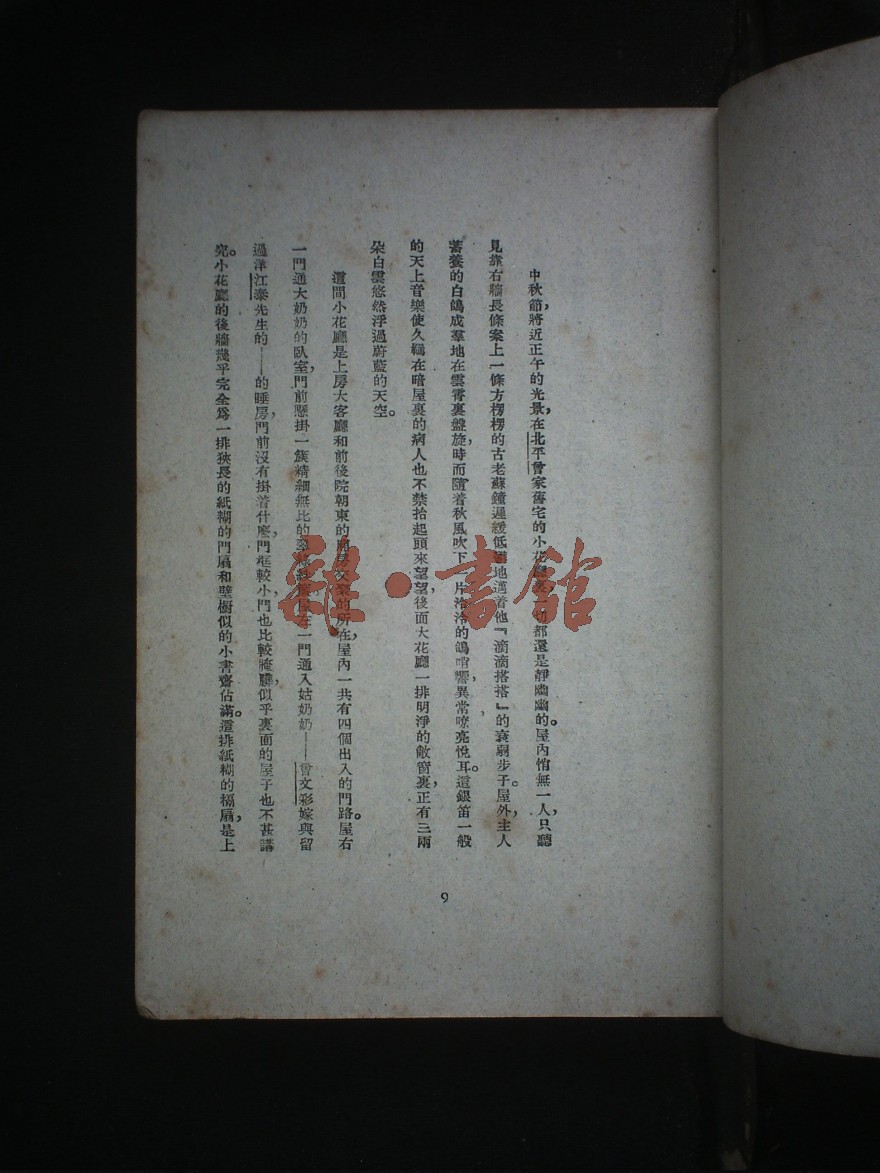 中秋節，將近正午的光景，在北平曾家舊宅的小花廳裏，一切都還是靜幽幽的。屋內悄無一人，只聽
見靠右牆長條案上一條方楞楞的古老蘇鐘遲緩低弱地邁着他『滴滴搭搭』的衰弱步子。屋外，主人
蓄養的白鴿成羣地在雲霄裏盤旋，時而隨着秋風吹下一片冷冷的鴿哨響，異常嘹亮悅耳。這銀笛一般
的天上音樂使久羈在暗屋裏的病人也不禁抬起頭來望望，後面大花廳一排明淨的敞窗裏，正有三兩
朵白雲悠然浮過蔚藍的天空。
這間小花廳是上房大客廳和前後院朝東的廂房交聚的所在，屋內一共有四個出入的門路。屋右
一門通大奶奶的臥室，門前懸掛一簇精細無比的翠綠紗簾，屋左一門通入姑奶奶——曾文彩，嫁與留
過洋江泰先生的——的睡房，門前沒有掛着什麼，門框較小，門也比較腌臢，似乎裏面的屋子也不甚講
究。小花廳的後牆幾乎完全爲一排狹長的紙糊的門扇和壁櫥似的小書齋佔滿。這排紙糊的槅扇，是上
9
雜·書館